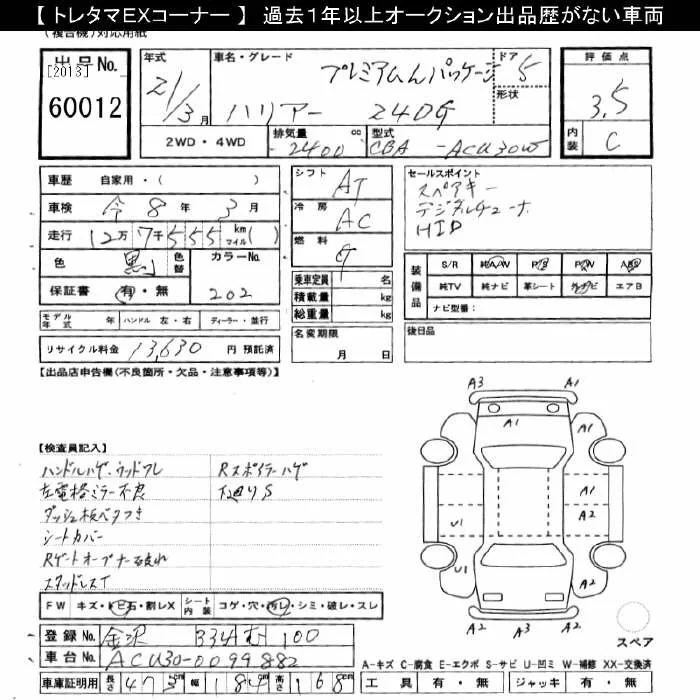 【 トレタマEXコーナー 】 過去1年以上オークション出品歴がない車両
(複合機)対応用紙
出品No.
[2013]
60012
年式
21/3月
車名・グレード
プレミアムLパッケージ
ハリアー 240G
ドア 5
形状
評価点
3.5
内装 C
2WD・4WD
排気量 2400 cc
型式 CBA-ACU30W
車歴 自家用・( )
車検 令 8年 3月
走行 12万7千555 km マイル( )
色 黒
色替
カラーNo. 202
保証書 有・無
モデル年式 年 ハンドル 左・右 ディーラー・並行
リサイクル料金 13,630 円 預託済
シフト AT
冷房 AC
燃料 G
乗車定員 名
積載量 kg
総重量 kg
名変期限 月 日
セールスポイント
スペアキー
デジタルチューナー
HID
装備品
S/R 純A/W P/S P/W ABS
純TV 純ナビ 革シート 外ナビ エアB
ナビ型番:
後日品
【出品店申告欄(不良箇所・欠品・注意事項等)】
【検査員記入】
ハンドルハゲ・ウッドワレ
左電格ミラー不良
ダッシュ板ベタつき
シートカバー
Rゲートオープナー破れ
スタッドレスT
Rスポイラーハゲ
下廻りS
FW キズ・トビ石・割レX シート内装 コゲ・穴・汚レ・シミ・破レ・スレ
登録No. 金沢 334 む 100
車台No. ACU30-0099882
車庫証明用 長さ 473cm 幅 184cm 高さ 168cm
A3 A1
A1
A1
A2
U1
U1
A2
A2 A3 A2
スペア
A-キズ C-腐食 E-エクボ S-サビ U-凹ミ W-補修 XX-交換済
工具 有・無 ジャッキ 有・無